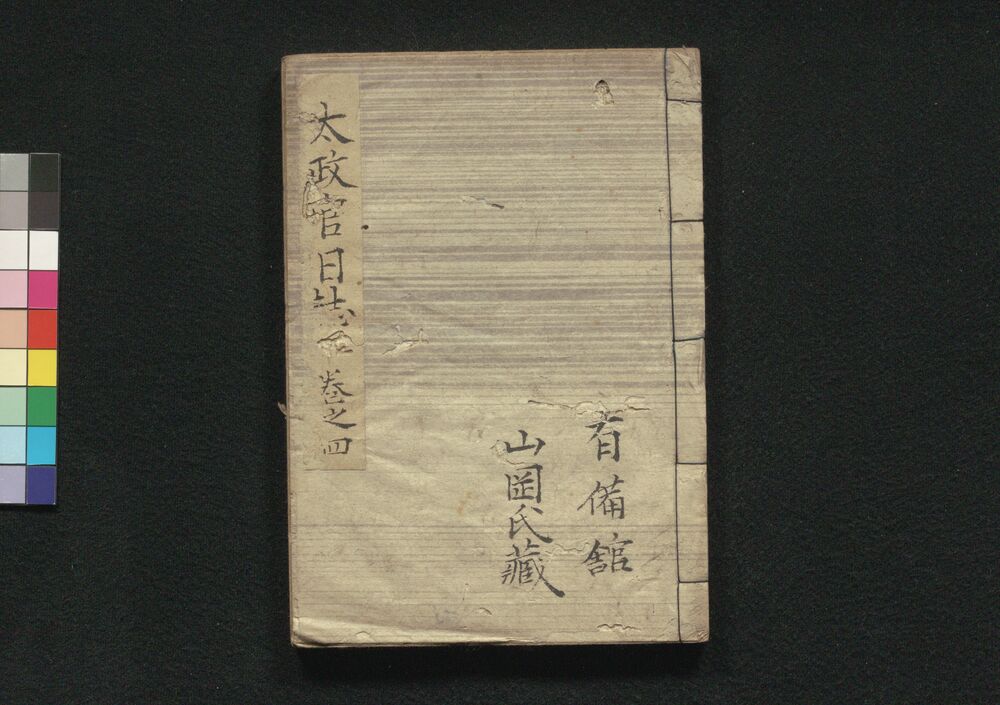 太政官日誌 卷之四
有備舘
山岡氏藏